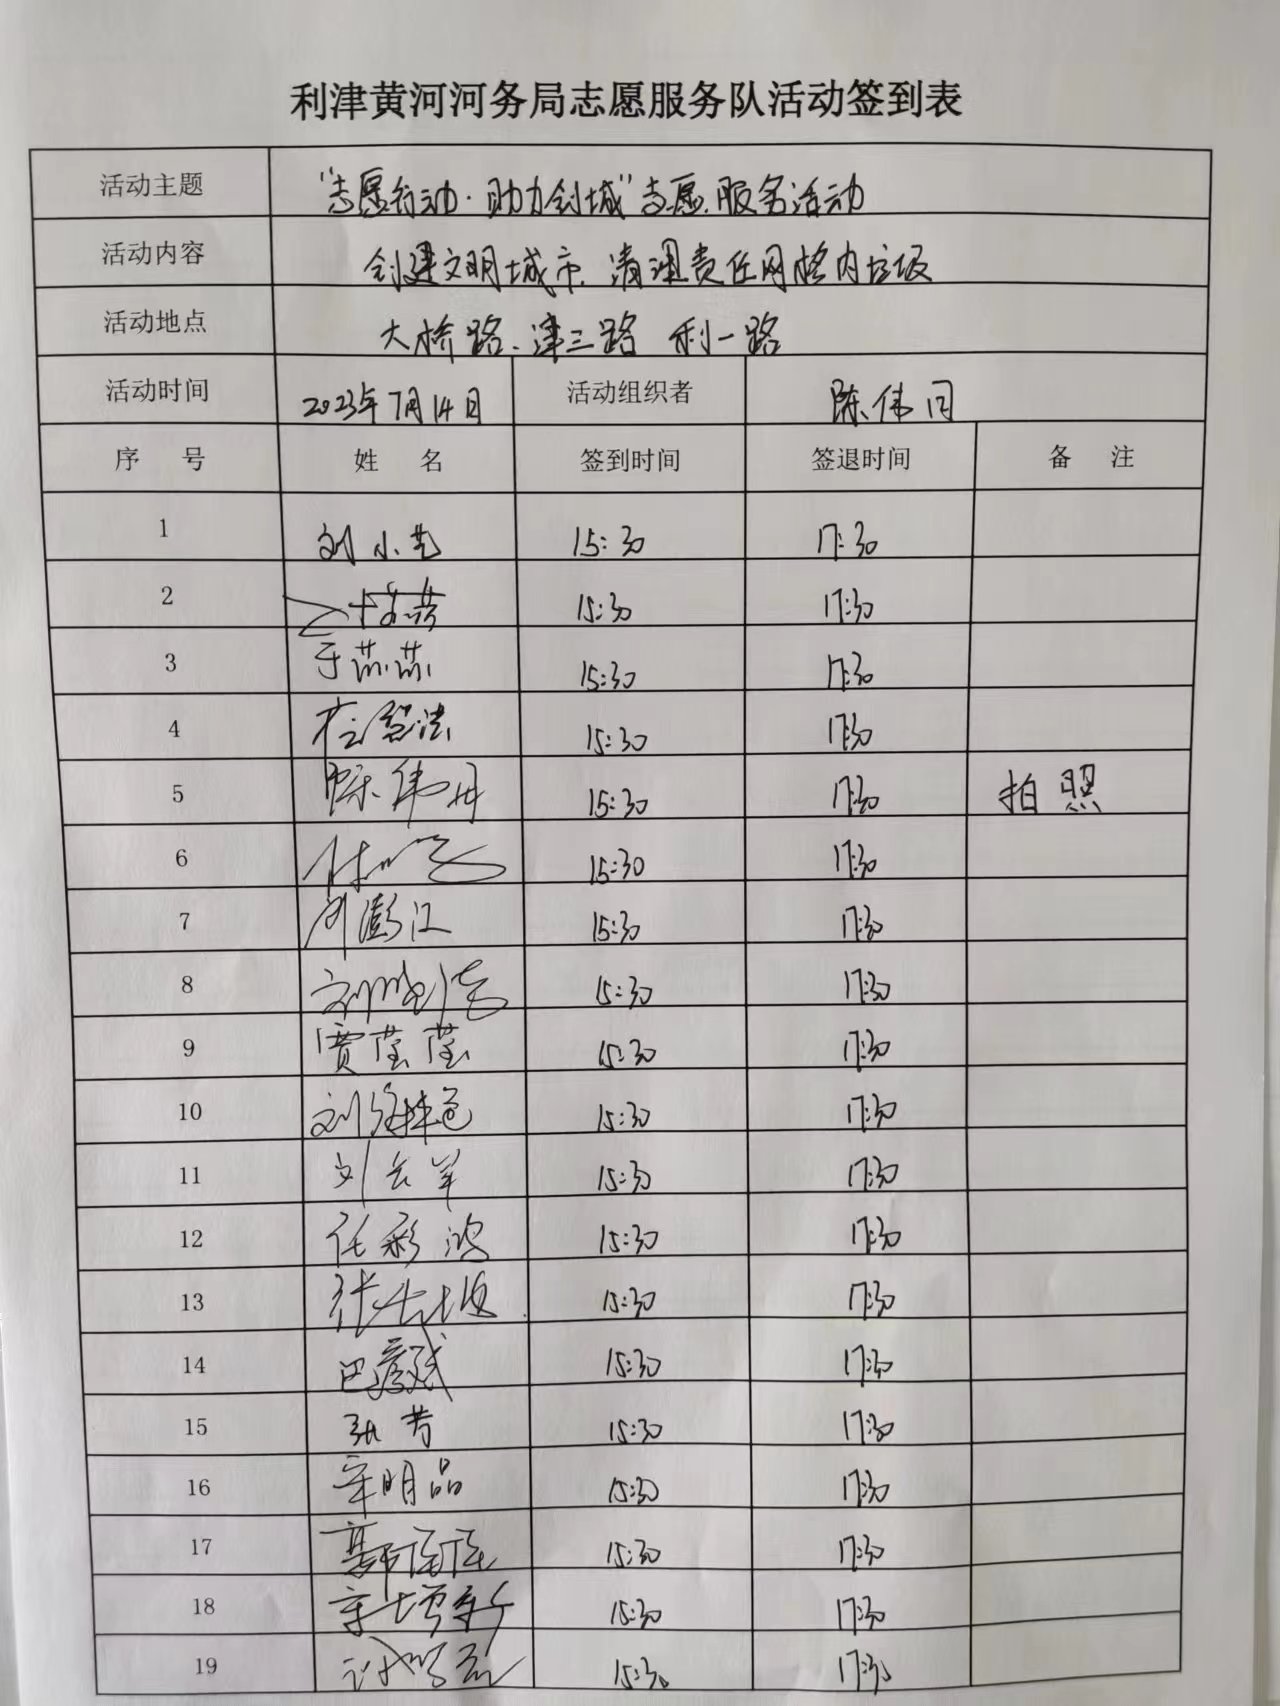 利津黄河河务局志愿服务队活动签到表
活动主题 “志愿行动·助力创城”志愿服务活动
活动内容 创建文明城市、清理责任网格内垃圾
活动地点 大桥路、津三路 利一路
活动时间 2023年7月14日 活动组织者 陈伟同
序 号 姓 名 签到时间 签退时间 备 注
1 刘小艺 15:30 17:30
2 15:30 17:30
3 于燕燕 15:30 17:30
4 15:30 17:30
5 陈伟丹 15:30 17:30 拍照
6 15:30 17:30
7 周澎江 15:30 17:30
8 15:30 17:30
9 贾莹莹 15:30 17:30
10 15:30 17:30
11 刘云羊 15:30 17:30
12 任彩鸿 15:30 17:30
13 15:30 17:30
14 15:30 17:30
15 张芳 15:30 17:30
16 宋明品 15:30 17:30
17 15:30 17:30
18 宋增新 15:30 17:30
19 15:30 17:30